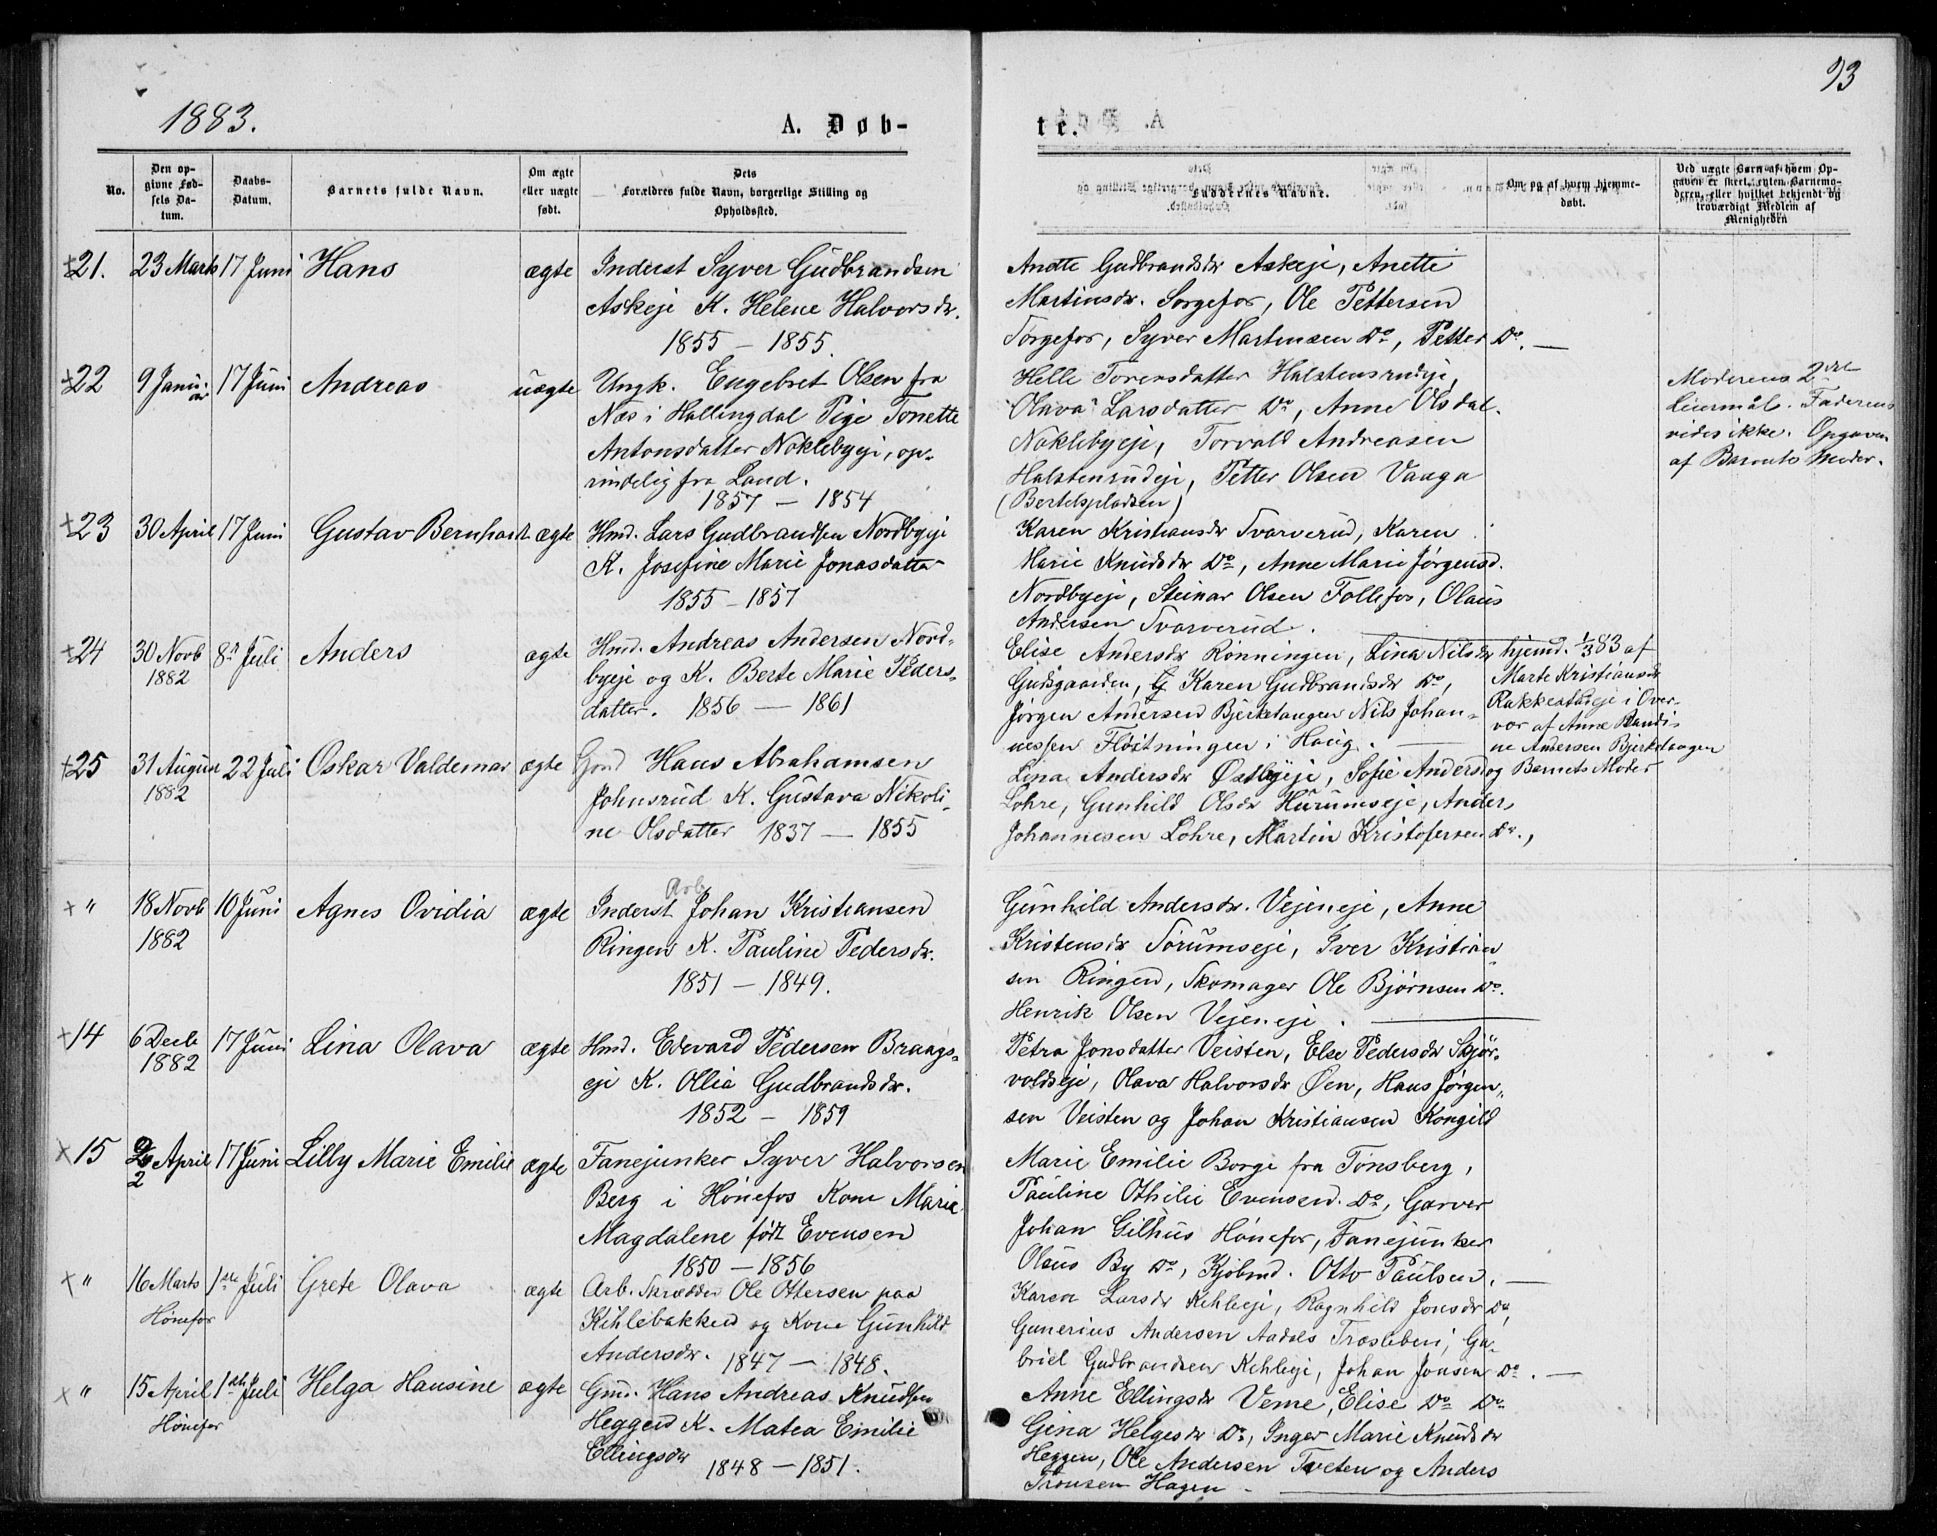 1883.
A. Døb-
No.
Den op-
givne Fød-
sels Da-
tum.
Daabs-
Datum.
Barnets fulde Navn.
Om ægte
eller uægte
født.
Dets
Forældres fulde Navn, borgerlige Stilling og
Opholdssted.
+21. 23 Marts 17 Juni Hans ægte Inderst Syver Gudbrandsen
Askeje K. Helene Halvorsdr.
1855 – 1855.
+22 9 Janu- 17 Juni Andreas uægte Ungk. Engebret Olsen fra
ar Næs i Hallingdal Pige Tonette
Antonsdatter Noklebyeje, op-
rindelig fra Land.
1857 – 1854
+23 30 April 17 Juni Gustav Bernhardt ægte Hmd. Lars Gudbrandsen Nordbyeje
K. Josefine Marie Jonasdatter
1855 – 1857
+24 30 Novb 8de Juli Anders ægte Hmd. Andreas Andersen Nord-
1882 byeje og K. Berte Marie Peders-
datter. 1856 — 1861
+25 31 August 22 Juli Oskar Valdemar ægte Gmd Hans Abrahamsen
1882 Johnsrud K. Gustava Nikoli-
ne Olsdatter 1837 — 1855
Arb.
+ " 18 Novb 10 Juni Agnes Ovidia ægte Inderst Johan Kristiansen
1882 Ringen K. Pauline Pedersdr.
1851 – 1849.
+14 6 Decb 17 Juni Lina Olava ægte Hmd. Edevard Pedersen Braags-
1882 eje K. Ollia Gudbrandsdr.
1852 – 1859
+15 2 April 17 Juni Lilly Marie Emilie ægte Fanejunker Syver Halvorsen
2 Berg i Hønefos Kone Marie
Magdalene født Evensen
1850 – 1856
+ " 16 Marts 1ste Juli Grete Olava ægte Arb. Skrædder Ole Ottersen paa
Hønefos Kihlebakken og Kone Gunhild
Andersdr. 1847 – 1848.
+ " 15 April 1ste Juli Helga Hansine ægte Gmd. Hans Andreas Knudsen
Hønefos Heggen K. Matea Emilie
Ellingsdr 1848 – 1851.
93
te.
Faddernes Navne.
Om og af hvem hjemme-
døbt.
Ved uægte Børn af hvem Op-
gaven er skeet, enten Barnemo-
deren, eller hvilket bekjendt og
troværdigt Medlem af
Menigheden
Anette Gudbrandsdr Askeje, Anette
Martinsdr. Sorgefos, Ole Pettersen
Sorgefos, Syver Martinsen Do, Petter Do. —
Helle Torersdatter Halstensrudeje,
Olava Larsdatter Do, Anne Olsdat.
Noklebyeje, Torvald Andreasen
Halstensrudeje, Petter Olsen Vaaga
(Bertelspladsen)
Moderens 2det
Leiermål. Faderens
vides ikke. Opgaven
af Barnets Moder.
Karen Kristiansdr Tvarverud, Karen
Marie Knudsdr Do, Anne Marie Jørgensd.
Nordbyeje, Steinar Olsen Follefos, Olaus
Andersen Tvarverud.
Elise Andersdr Rønningen, Lina Nilsdr
Gudsgaarden, Karen Gudbrandsdr Do,
Jørgen Andersen Bjerketangen Nils Johan-
nessen Fløitningen i Houg. —
hjemd. 1/3 83 af
Marte Kristiansdr
Rakkestadeje i Over-
vær af Anne Randi-
ne Andersen Bjerketangen
og Barnets Moder
Lina Andersdr Østbyeje, Sofie Andersd
Lohre, Gunhild Olsdr Hurumseje, Anders
Johannesen Lohre, Martin Kristofersen Do.,
Gunhild Andersdr. Vejeneje, Anne
Kristensdr Sørumseje, Iver Kristian-
sen Ringen, Skomager Ole Bjørnsen Do.
Henrik Olsen Vejeneje.
Petra Jonsdatter Veisten, Else Pedersdr Skjør-
voldseje, Olava Halvorsdr Øen, Hans Jørgen-
sen Veisten og Johan Kristiansen Kongild
Marie Emilie Borge fra Tønsberg,
Pauline Othilie Evensen. Do, Garver
Johan Gilhus Hønefos, Fanejunker
Olaus By Do, Kjøbmd. Otto Paulsen. —
Karen Larsdr Kihleeje, Ragnhild Jonsdr Do,
Gunerius Andersen Aadals Træsliberi, Ga-
briel Gudbrandsen Kehleje, Johan Jonsen Do. —
Anne Ellingsdr Veme, Elise Do Do.
Gina Helgesdr Do, Inger Marie Knudsdr
Heggen, Ole Andersen Tveten og Anders
Tronsen Hagen.